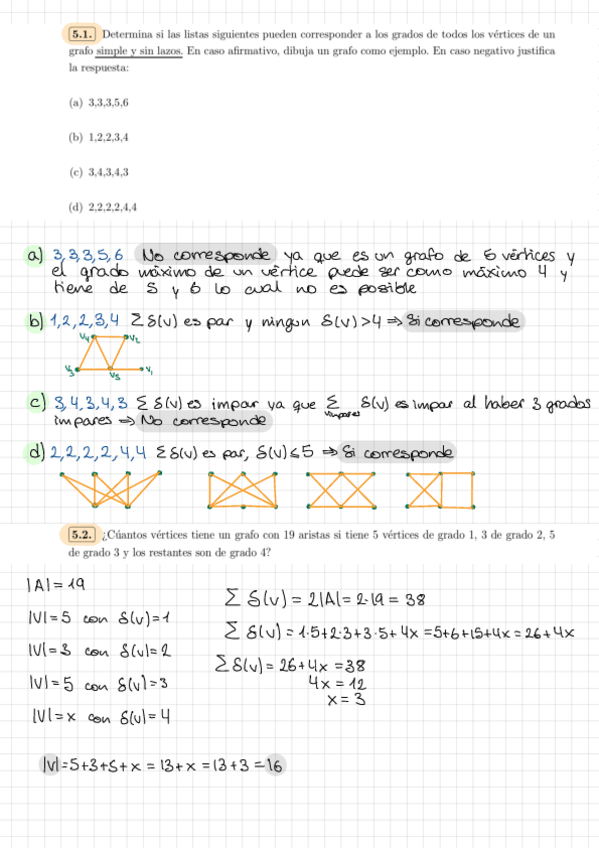 5.1. Determina si las listas siguientes pueden corresponder a los grados de todos los vértices de un
grafo simple y sin lazos. En caso afirmativo, dibuja un grafo como ejemplo. En caso negativo justifica
la respuesta:
(a) 3,3,3,5,6
(b) 1,2,2,3,4
(c) 3,4,3,4,3
(d) 2,2,2,2,4,4
a) 3,3,3,5,6 No corresponde ya que es un grafo de 5 vértices y
el grado máximo de un vértice puede ser como máximo 4 y
tiene de 5 y 6 lo cual no es posible
b) 1,2,2,3,4 Σ δ(v) es par y ningun δ(v)>4 ⇒ Si corresponde
V4 V2
V3 V5 V1
c) 3,4,3,4,3 Σ δ(v) es impar ya que Σ δ(v) es impar al haber 3 grados
v impares
impares ⇒ No corresponde
d) 2,2,2,2,4,4 Σ δ(v) es par, δ(v)≤5 ⇒ Si corresponde
5.2. ¿Cúantos vértices tiene un grafo con 19 aristas si tiene 5 vértices de grado 1, 3 de grado 2, 5
de grado 3 y los restantes son de grado 4?
|A|=19
|V|=5 con δ(v)=1
|V|=3 con δ(v)=2
|V|=5 con δ(v)=3
|V|=x con δ(v)=4
Σ δ(v) = 2|A| = 2·19 = 38
Σ δ(v) = 1·5+2·3+3·5+4x =5+6+15+4x = 26+4x
Σ δ(v) = 26+4x =38
4x = 12
x = 3
|V|=5+3+5+x = 13+x = 13+3 =16